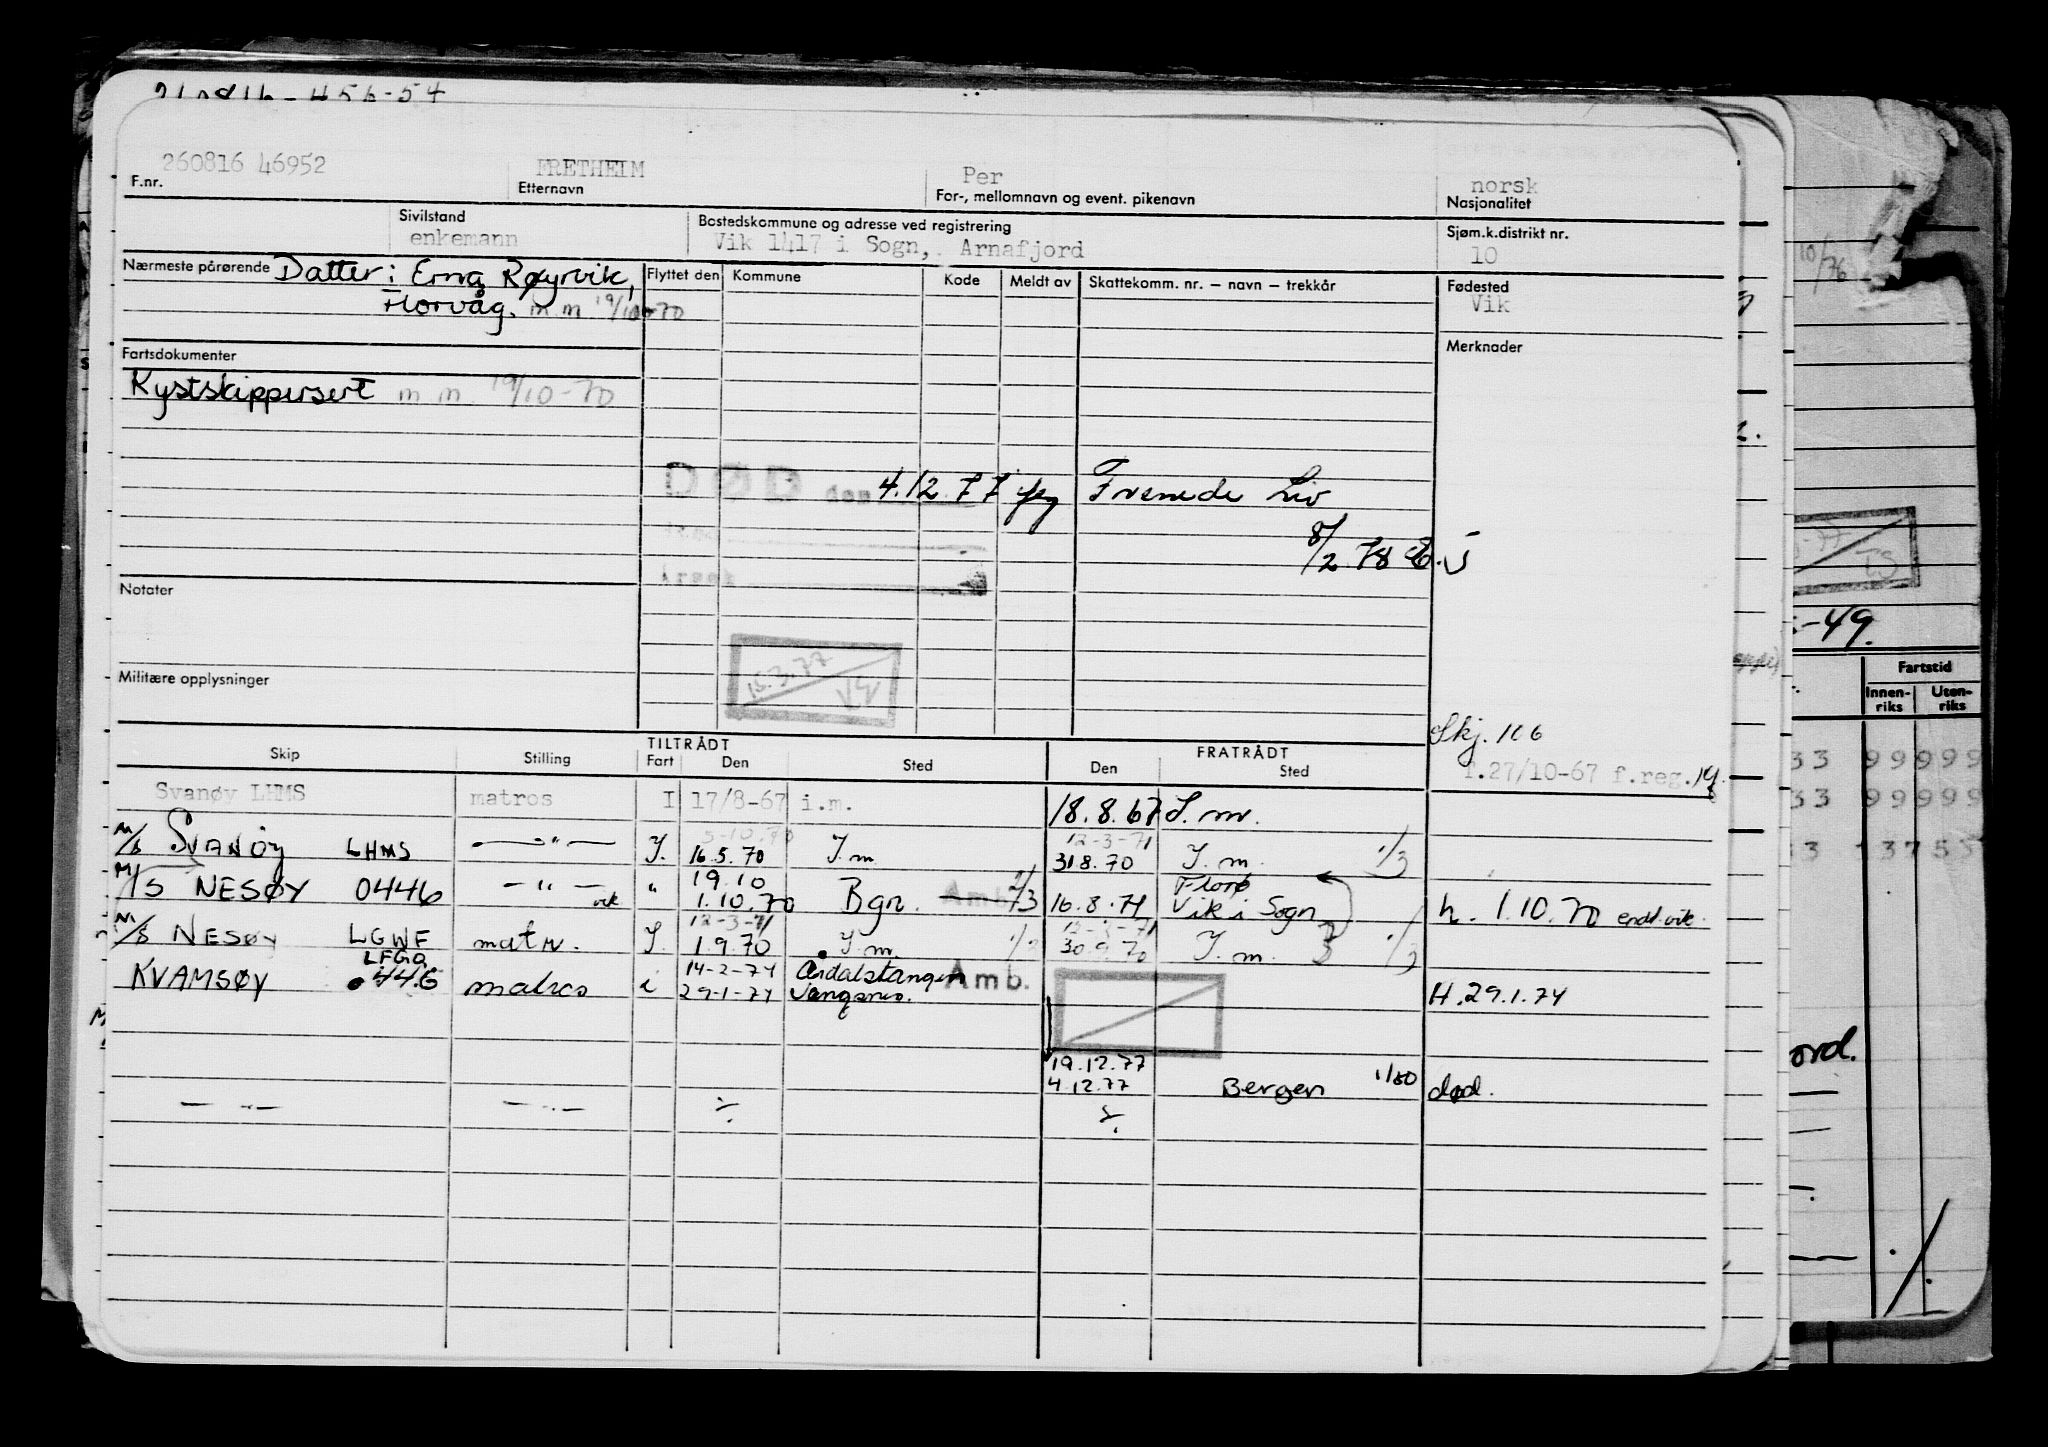 456-54
260816 46952 FRETHEIM Per norsk
F.nr. Etternavn For-, mellomnavn og event. pikenavn Nasjonalitet
Sivilstand Bostedskommune og adresse ved registrering Sjøm.k.distrikt nr.
enkemann Vik 1417 i Sogn, Arnafjord 10
Nærmeste pårørende Datter: Erna Røyrvik, Flyttet den Kommune Kode Meldt av Skattekomm. nr. – navn – trekkår Fødested
Horvåg. m m 19/10-70 Vik
Fartsdokumenter Merknader
Kystskippersert m m 19/10-70
DØD den 4.12.77 Fremede Liv
8/2 78
Årsak
Notater
15.3.77
Militære opplysninger
Skj. 106
T.27/10-67 f.reg.
TILTRÅDT FRATRÅDT
Skip Stilling Fart Den Sted Den Sted
Svanøy LHMS matros I 17/8-67 i.m. 18.8.67 I.m.
5-10.70 12-3-71
M/S SVANØY LHMS — " — I. 16.5.70 I.m. 31.8.70 I.m. 1/3
19.10 Florø
M/S NESØY 0446 — " — " 1.10.70 Bgn. Amb. 16.8.71 Vik i Sogn h. 1.10.70 endt.vik.
vik
12-3-71 12-3-71
M/S NESØY LGWF matr. I. 1.9.70 I.m. 30.9.70 I.m. 1/3
LFGO 14-2-74 Årdalstangen Amb.
KVAMSØY 0446 matros i 29-1-74 Vangsnes. H.29.1.74
19.12.77
4.12.77 Bergen 1/80 død.
— " — — " — ÷ ÷
10/76
-49.
Fartstid
Innen-riks Uten-riks
33 99999
33 99999
ord.